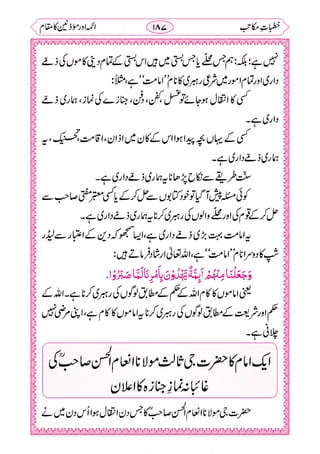 خطباتِ مکاتب ۱۸۷ ائمہ اور مؤذنین کا مقام
نہیں ہے؛ بلکہ: ہم جس محلے یا جس بستی میں ہیں اس بستی کے تمام دینی کاموں کی ذمے
داری اور تمام شرعی امور میں رہبری کرنا اس کا نام "امامت" ہے، مثلاً:
کسی کا انتقال ہو جائے تو غسل، کفن، دفن، جنازے کی نماز، ہمارے ذمے، ہماری ذمے
داری ہے۔
کسی کے یہاں بچہ پیدا ہوا اس کے کان میں اذان، اقامت، تحنیک، یہ
ہماری ذمے داری ہے۔
سنت طریقے سے نکاح پڑھانا یہ ہماری ذمے داری ہے۔
کوئی مسئلہ پیش آ گیا تو خود کتابوں سے حل کر کے یا کسی معتبر مفتی صاحب سے
حل کر کے قوم کی اور محلے والوں کی رہبری کرنا یہ ہماری ذمے داری ہے۔
یہ امامت بہت بڑی ذمے داری ہے، ایسا سمجھو کہ دین کے اعتبار سے لیڈر
شپ کا دوسرا نام "امامت" ہے، اللہ تعالیٰ ارشاد فرماتے ہیں:
وَجَعَلْنَا مِنْهُمْ اَئِمَّةً يَّهْدُوْنَ بِاَمْرِنَا لَمَّا صَبَرُوْا۔
یعنی اماموں کا کام اللہ کے حکم کے مطابق لوگوں کی رہبری کرنا ہے۔ اللہ کے
حکم اور شریعت کے مطابق لوگوں کی رہبری کرنا یہ اماموں کا کام ہے، اپنی مرضی نہیں
چلانی ہے۔
ایک امام کا حضرت جی ثالث مولانا انعام الحسن صاحبؒ کی
غائبانہ نمازِ جنازہ کا اعلان
حضرت جی مولانا انعام الحسن صاحبؒ کا جس دن انتقال ہوا اُس دن میں نے